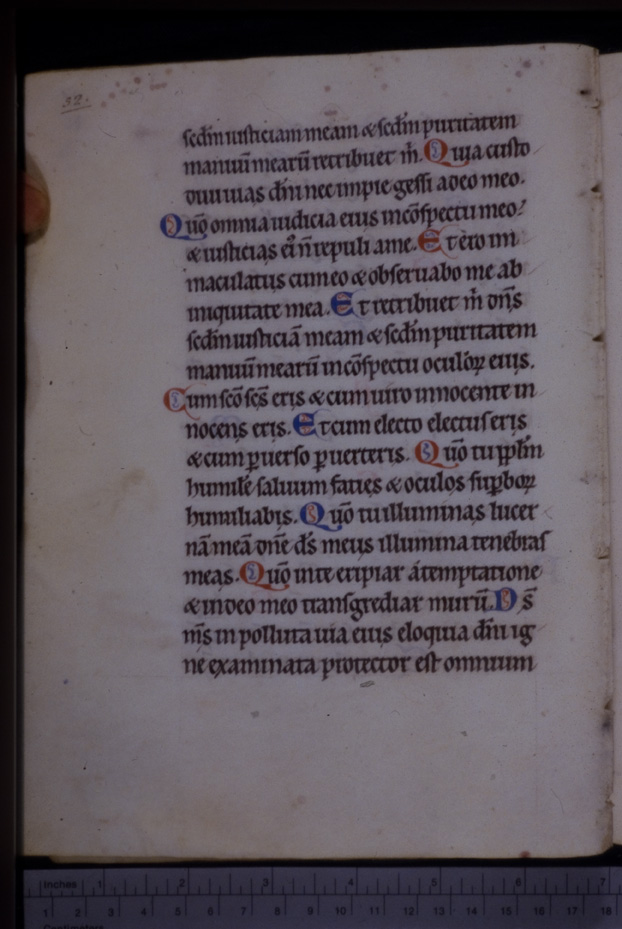 32.
scd̄m iusticiam meam & scd̄m puritatem
manuū mearū retribuet m̄. Quia custo
diui uias dn̄i nec impie gessi a deo meo.
Quō omnia iudicia eius in cōspectu meo:
& iusticias ei n̄ repuli a me. Et ero im
maculatus cum eo & obseruabo me ab
iniquitate mea. Et retribuet m̄ dn̄s
scd̄m iusticiā meam & scd̄m puritatem
manuū mearū in cōspectu oculoꝝ eius.
Cum scō scs̄ eris & cum uiro innocente in
nocens eris. Et cum electo electus eris
& cum ꝑuerso ꝑuerteris. Quō tu pp̄lm
humilē saluum facies & oculos suꝑboꝝ
humiliabis. Quō tu illuminas lucer
nā meā dn̄e ds̄ meus illumina tenebras
meas. Quō in te eripiar a temptatione
& in deo meo transgrediar murū. Ds̄
ms̄ in polluta uia eius eloquia dn̄i ig
ne examinata protector est omnium
Inches 1 2 3 4 5 6 7
1 2 3 4 5 6 7 8 9 10 11 12 13 14 15 16 17 18
Centimetres